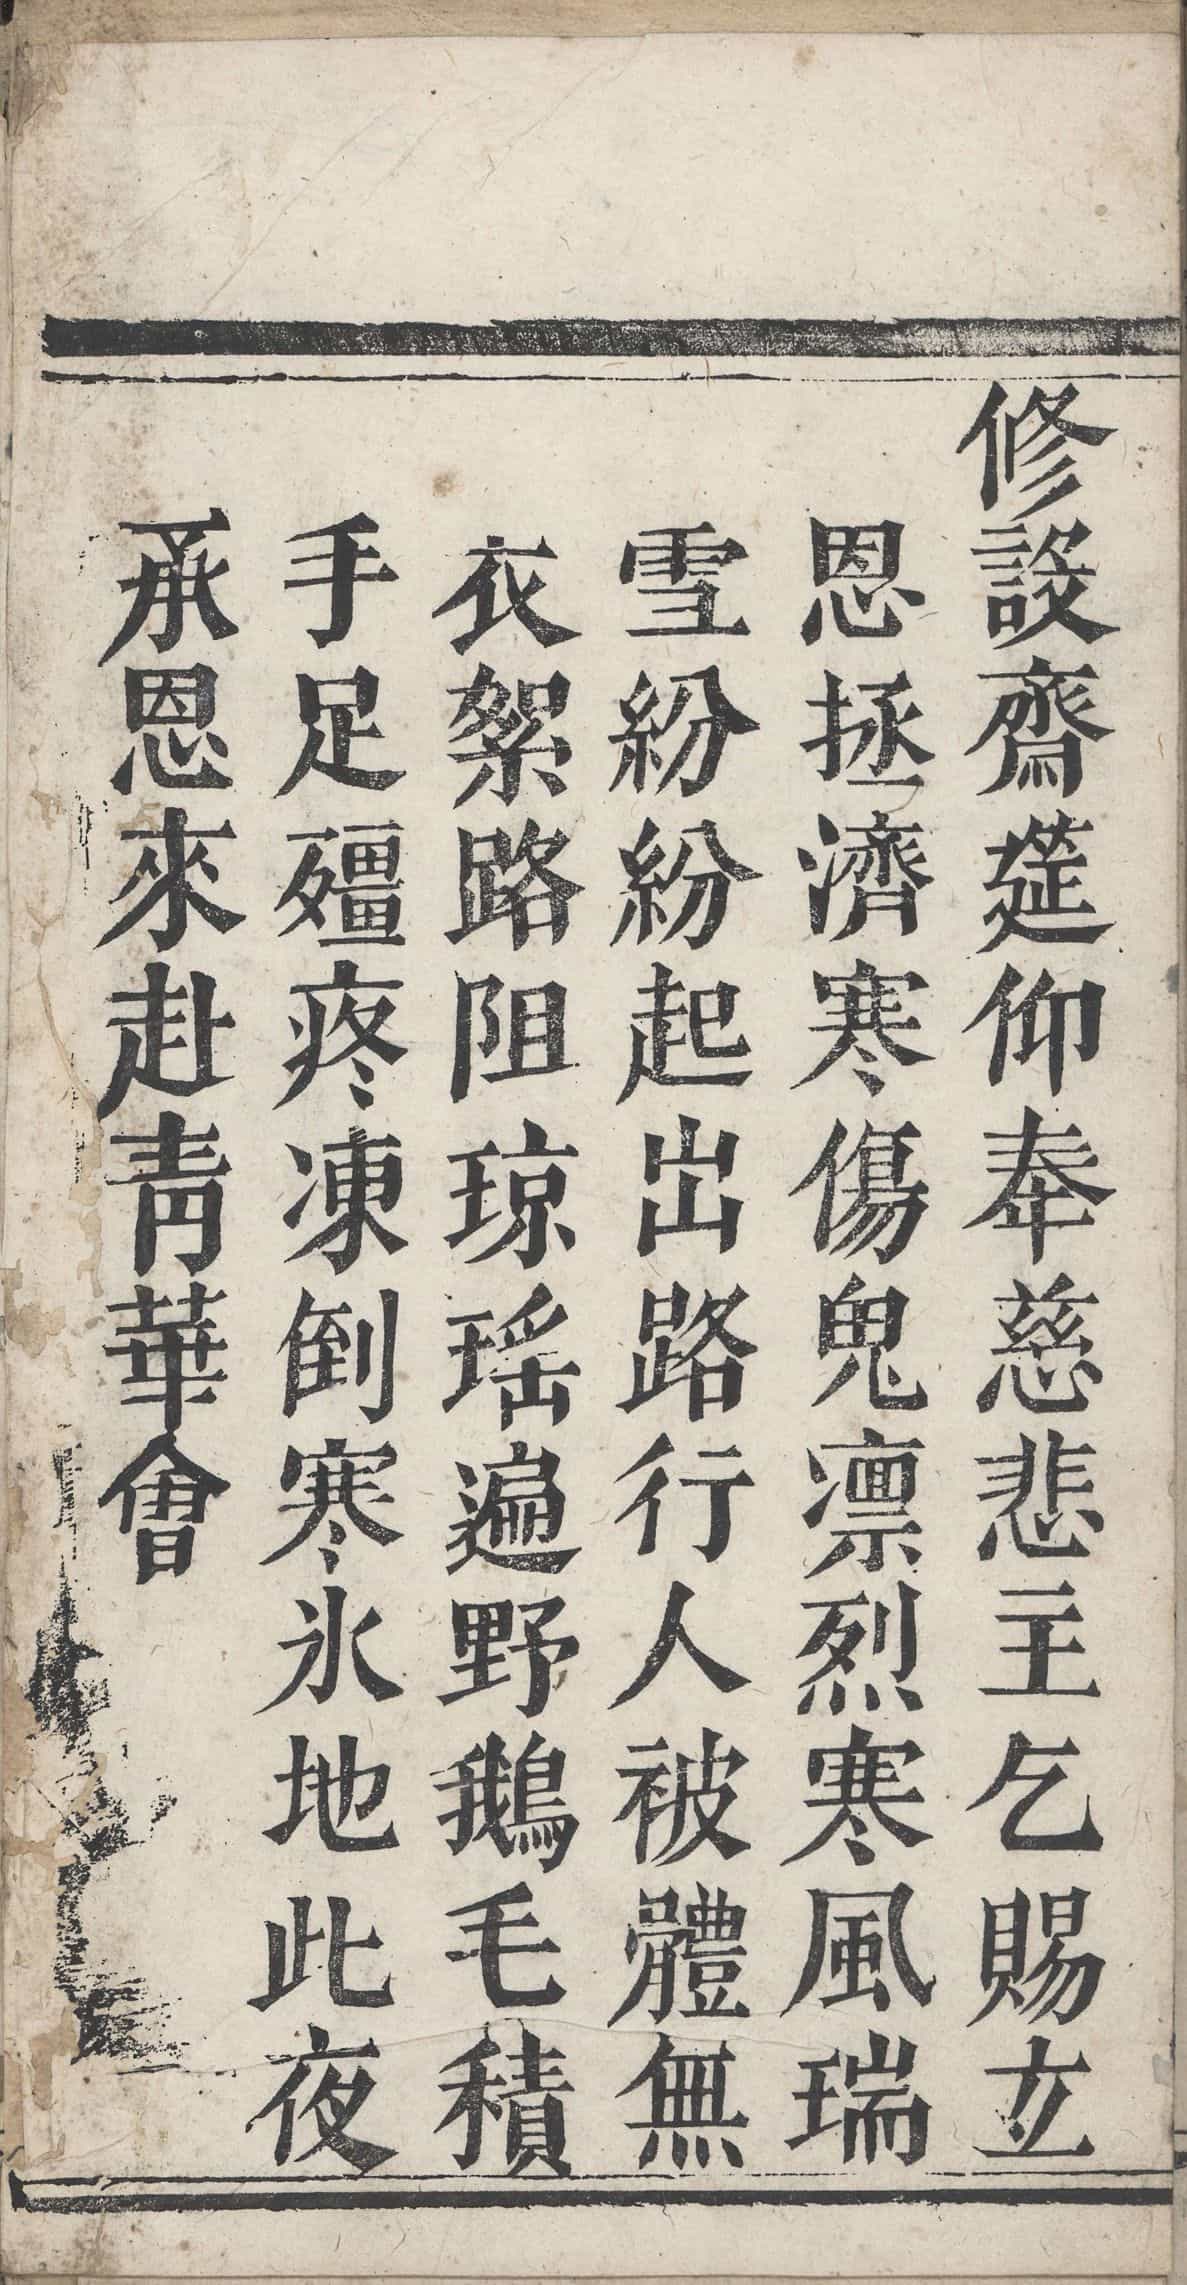 修設齋筵仰奉慈悲主乞賜玄
恩拯濟寒傷鬼凛烈寒風瑞
雪紛紛起出路行人被體無
衣絮路阻琼瑶遍野鵝毛積
手足殭疼凍倒寒氷地此夜
承恩來赴青華會